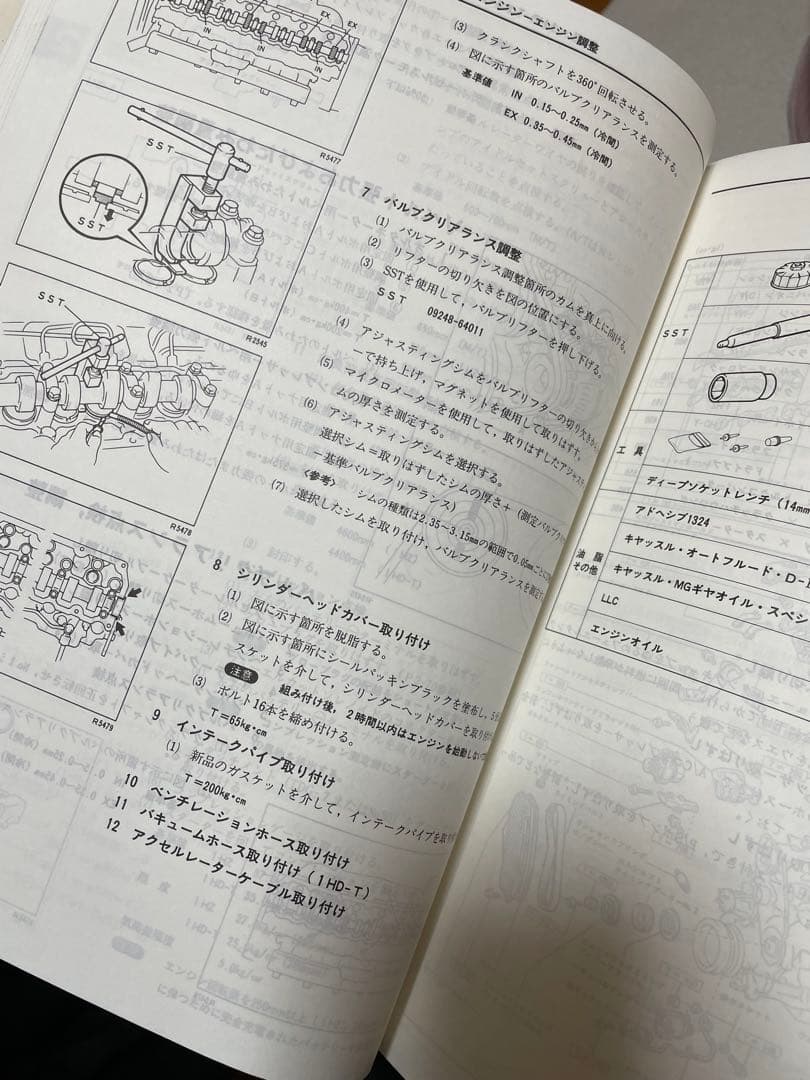 エンジン−エンジン調整
(3) クランクシャフトを360°回転させる。
(4) 図に示す箇所のバルブクリアランスを測定する。
基準値 IN 0.15〜0.25mm（冷間）
EX 0.35〜0.45mm（冷間）
EX
EX
IN
IN
IN
R5477
7 バルブクリアランス調整
(1) バルブクリアランス調整箇所のカムを真上に向ける。
(2) リフターの切り欠きを図の位置にする。
(3) SSTを使用して，バルブリフターを押し下げる。
SST 09248-64011
SST
SST
R2545
(4) アジャスティングシムをバルブリフターの切り欠きから
ーで持ち上げ，マグネットを使用して取りはずす。
(5) マイクロメーターを使用して，取りはずしたアジャステ
ムの厚さを測定する。
(6) アジャスティングシムを選択する。
選択シム＝取りはずしたシムの厚さ＋（測定バルブク
−基準バルブクリアランス）
〈参考〉 シムの種類は2.35〜3.15mmの範囲で0.05mmごとに
(7) 選択したシムを取り付け，バルブクリアランスを測定
SST
R5478
8 シリンダーヘッドカバー取り付け
(1) 図に示す箇所を脱脂する。
(2) 図に示す箇所にシールパッキンブラックを塗布し，5分
スケットを介して，シリンダーヘッドカバーを取り付
注意 組み付け後，2時間以内はエンジンを始動しない
(3) ボルト16本を締め付ける。
T＝65kg・cm
R5479
9 インテークパイプ取り付け
(1) 新品のガスケットを介して，インテークパイプを取り
T＝200kg・cm
10 ベンチレーションホース取り付け
11 バキュームホース取り付け（1HD-T）
12 アクセルレーターケーブル取り付け
SST
工具
ディープソケットレンチ（14mm
油脂
その他
アドヘシブ1324
キャッスル・オートフルード・D-
キャッスル・MGギヤオイル・スペシ
LLC
エンジンオイル